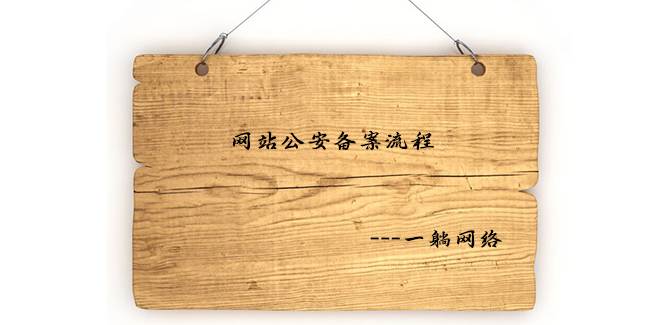 网站公安备案流程
---一躺网络